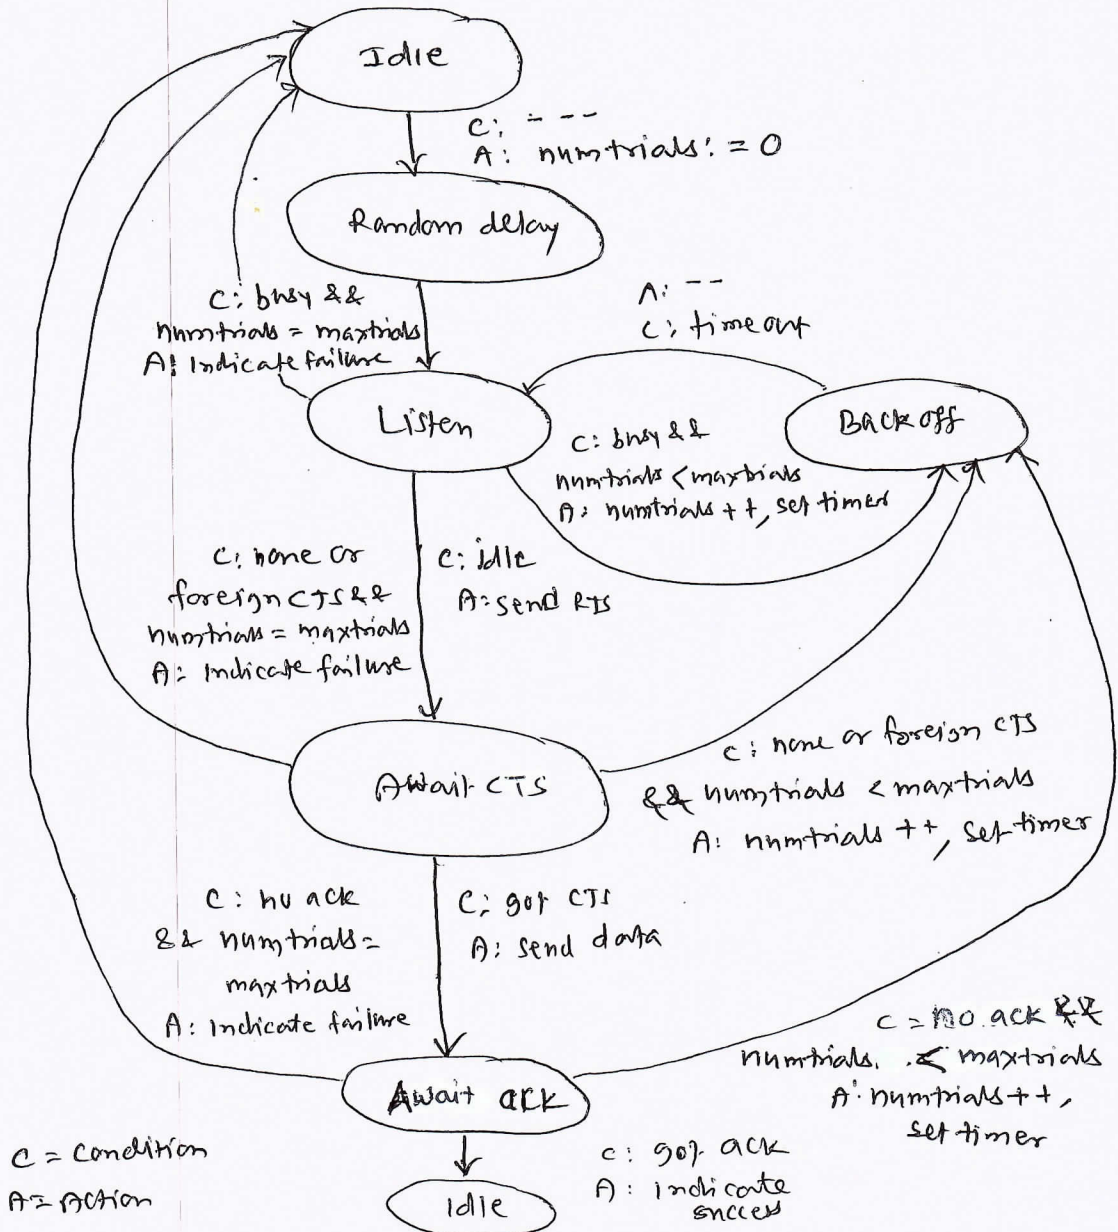 Idle
C: - - -
A: numtrials: = 0
Random delay
C: busy &&
numtrials = maxtrials
A: Indicate failure
A: - -
C: timeout
Listen
Back off
C: busy &&
numtrials < maxtrials
A: numtrials ++, set timer
C: none or
foreign CTS &&
numtrials = maxtrials
A: Indicate failure
C: idle
A: send RTS
Await CTS
C: none or foreign CTS
&& numtrials < maxtrials
A: numtrials ++, set timer
C: no ack
&& numtrials =
maxtrials
A: Indicate failure
C: got CTS
A: send data
C = no ack &&
numtrials. < maxtrials
A: numtrials ++,
set timer
Await ack
C = Condition
A = Action
C: got ack
A: indicate
success
Idle